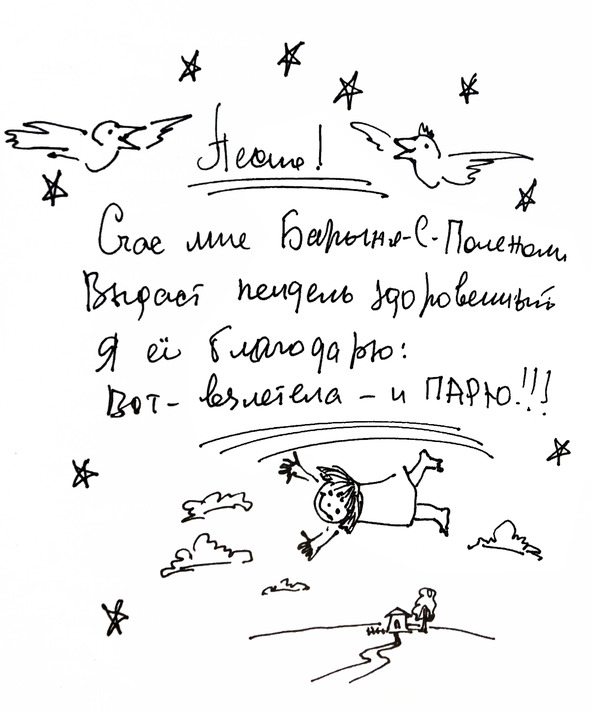 Счас мне Барыня-С-Поленом
Выдаст пендель здоровенный
Я ей благодарю:
Вот - взлетела - и ПАРЮ!!!